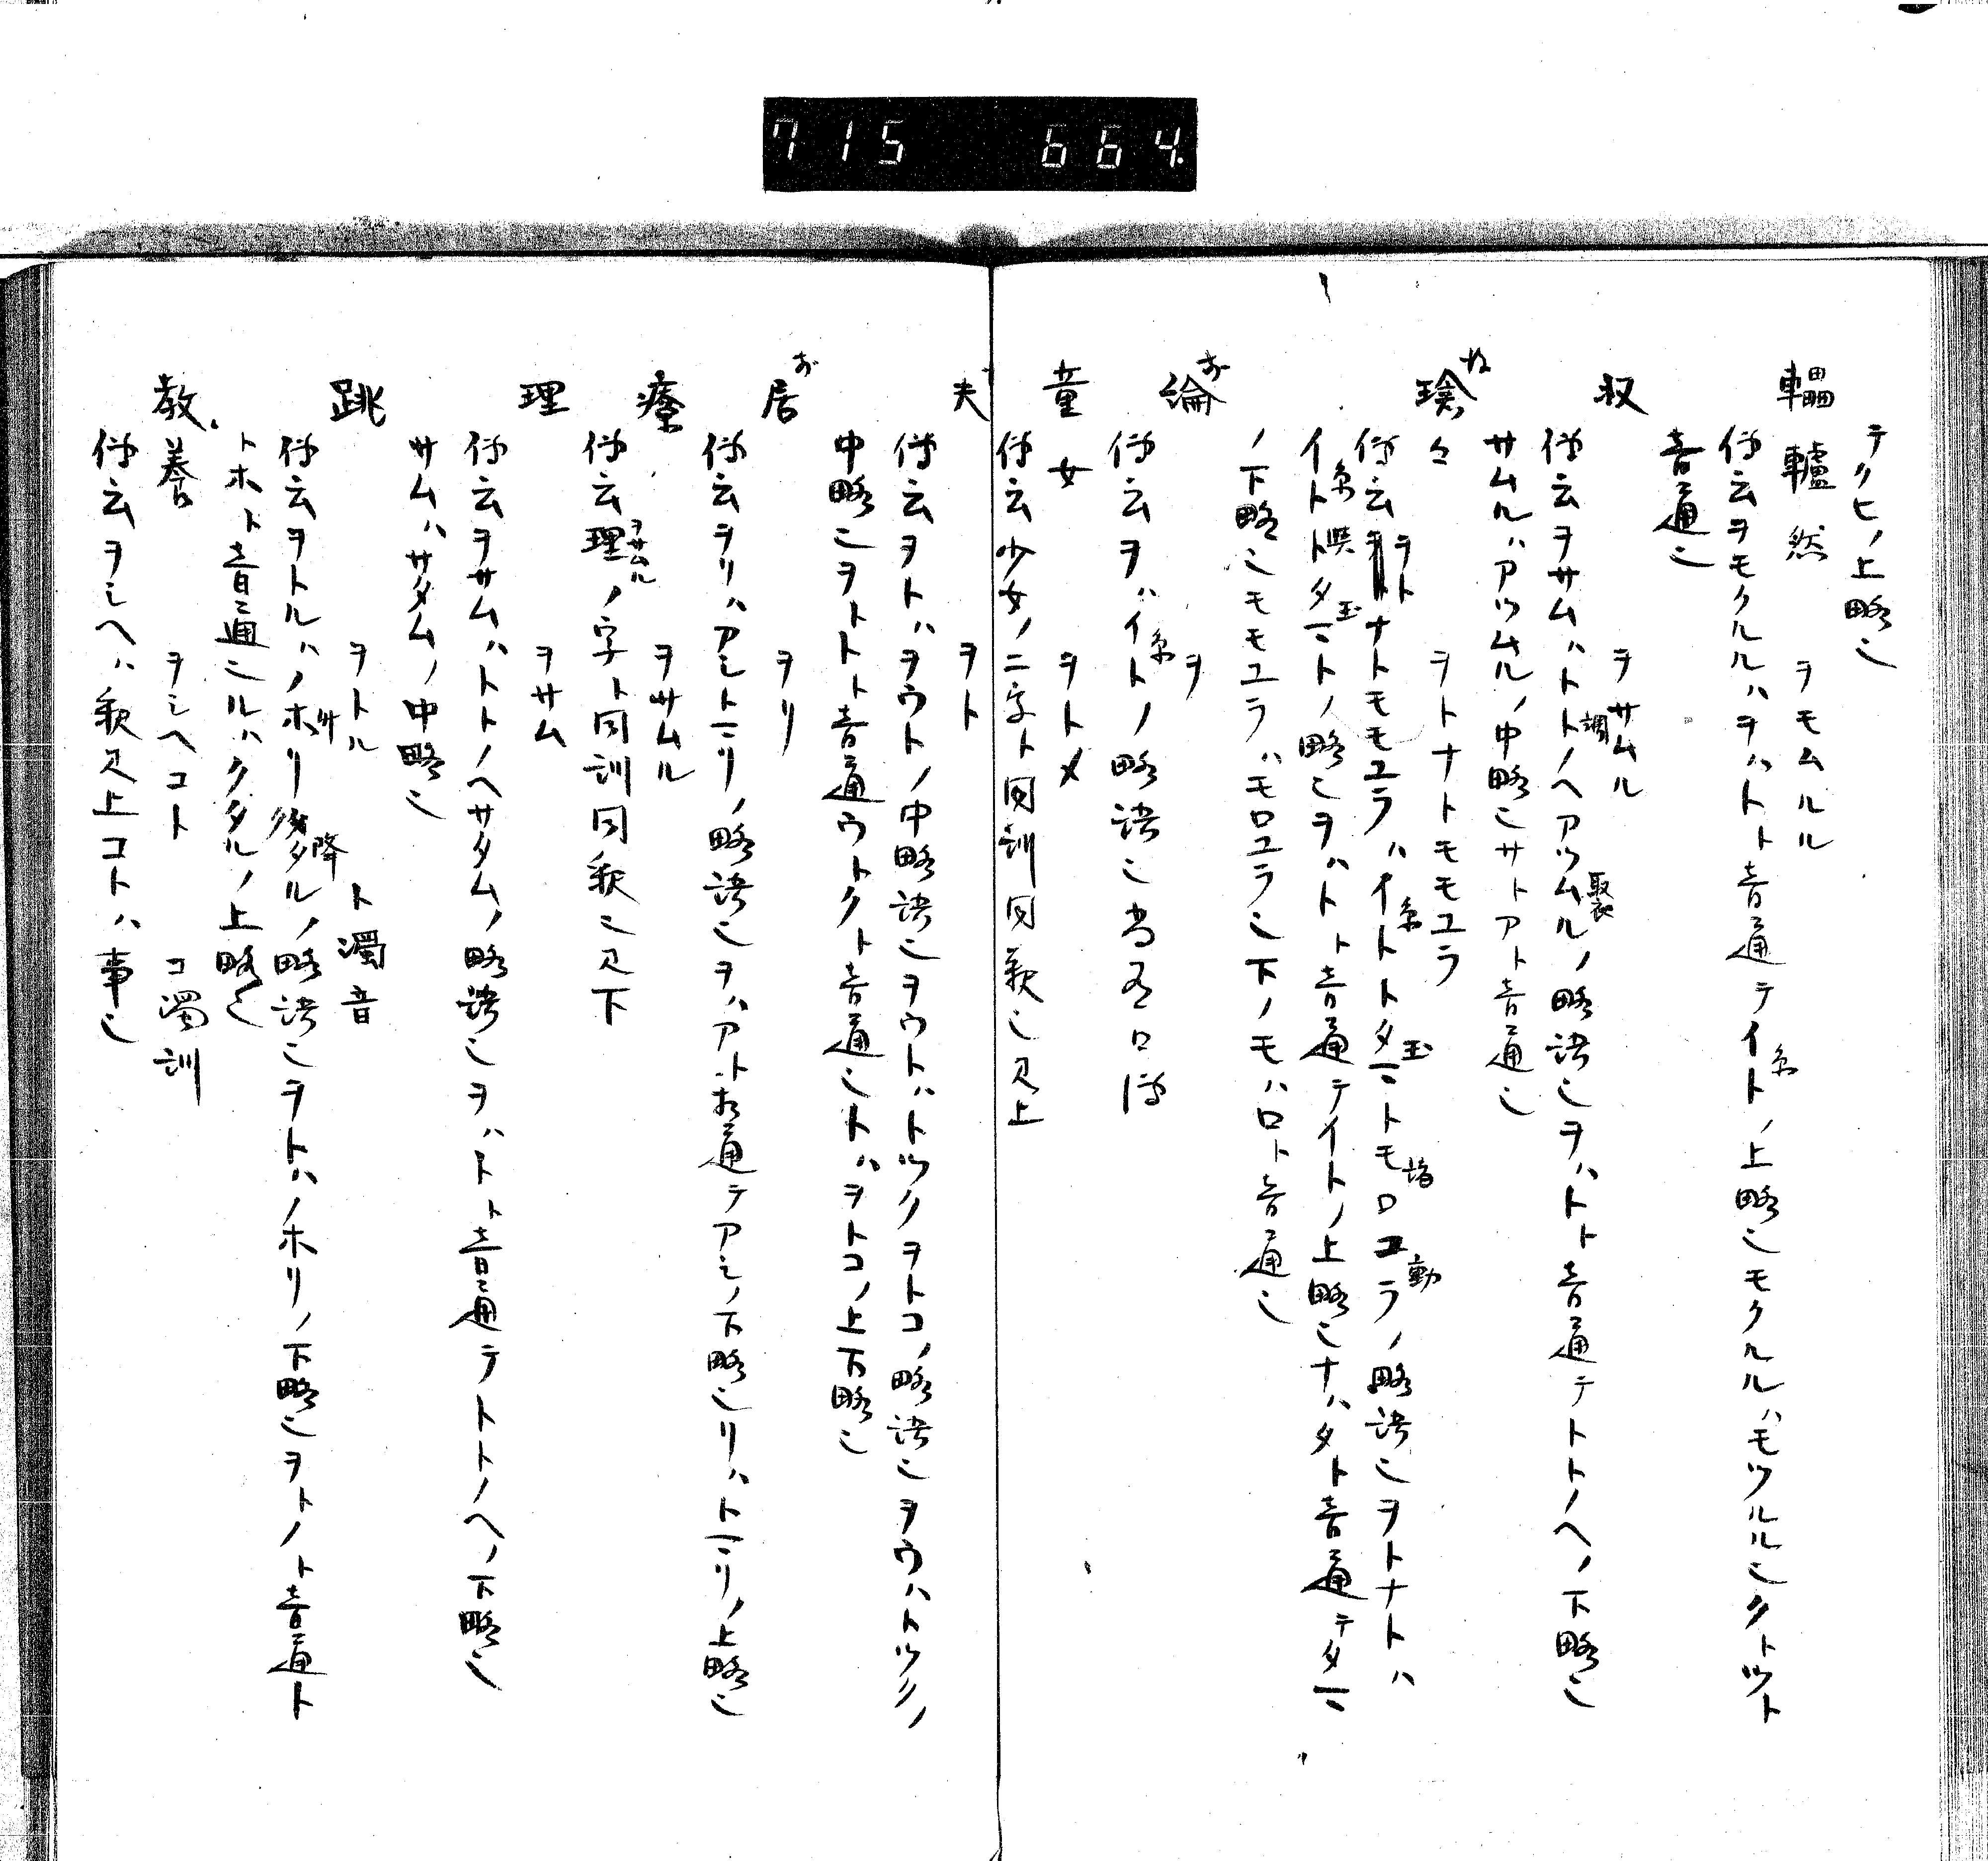 715 664.
テクヒノ上略ニ
轠轤然 ヲモムルル
伝云ヲモクルルハヲハトト音通テイトノ上略ニモクルルハモツルルニクトツト
音通ニ
収 ヲサムル
伝云ヲサムハトトノヘアツムルノ略語ニヲハトト音通テトトノヘノ下略ニ
サムルハアツムルノ中略ニサトアト音通ニ
ヲトナトモモユラ
ナトモモユラハイトトタマトモロユラノ略語ニヲトナトハ
イトトタマトノ略ニヲハトト音通テイトノ上略ニナハタト音通テタマ
ノ下略ニモモユラハモロユラニ下ノモハロト音通ニ
綸 ヲ
伝云ヲハイトノ略語ニ
童女 ヲトメ
伝云少女ノ二字ト同訓同釈ニ見上
夫 ヲト
伝云ヲトハヲウトノ中略語ニヲウトハトツクヲトコノ略語ニヲウハトツクノ
中略ニヲトト音通ウトクト音通ニトハヲトコノ上下略ニ
居 ヲリ
伝云ヲリハアシトマリノ略語ニヲハアト通テアシノ下略ニリハトマリノ上略ニ
療 ヲサムル
伝云理ノ字ト同訓同釈ニ見下
理 ヲサム
伝云ヲサムハトトノヘサタムノ略語ニヲハトト音通テトトノヘノ下略ニ
サムハサタムノ中略ニ
跳 ヲトル ト濁音
伝云ヲトルハノホリクタルノ略語ニヲトハノホリノ下略ニヲトノト音通ト
トホト音通ニルハクタルノ上略ニ
教養 ヲシヘコト コ濁訓
伝云ヲシヘハ釈見上コトハ事ニ